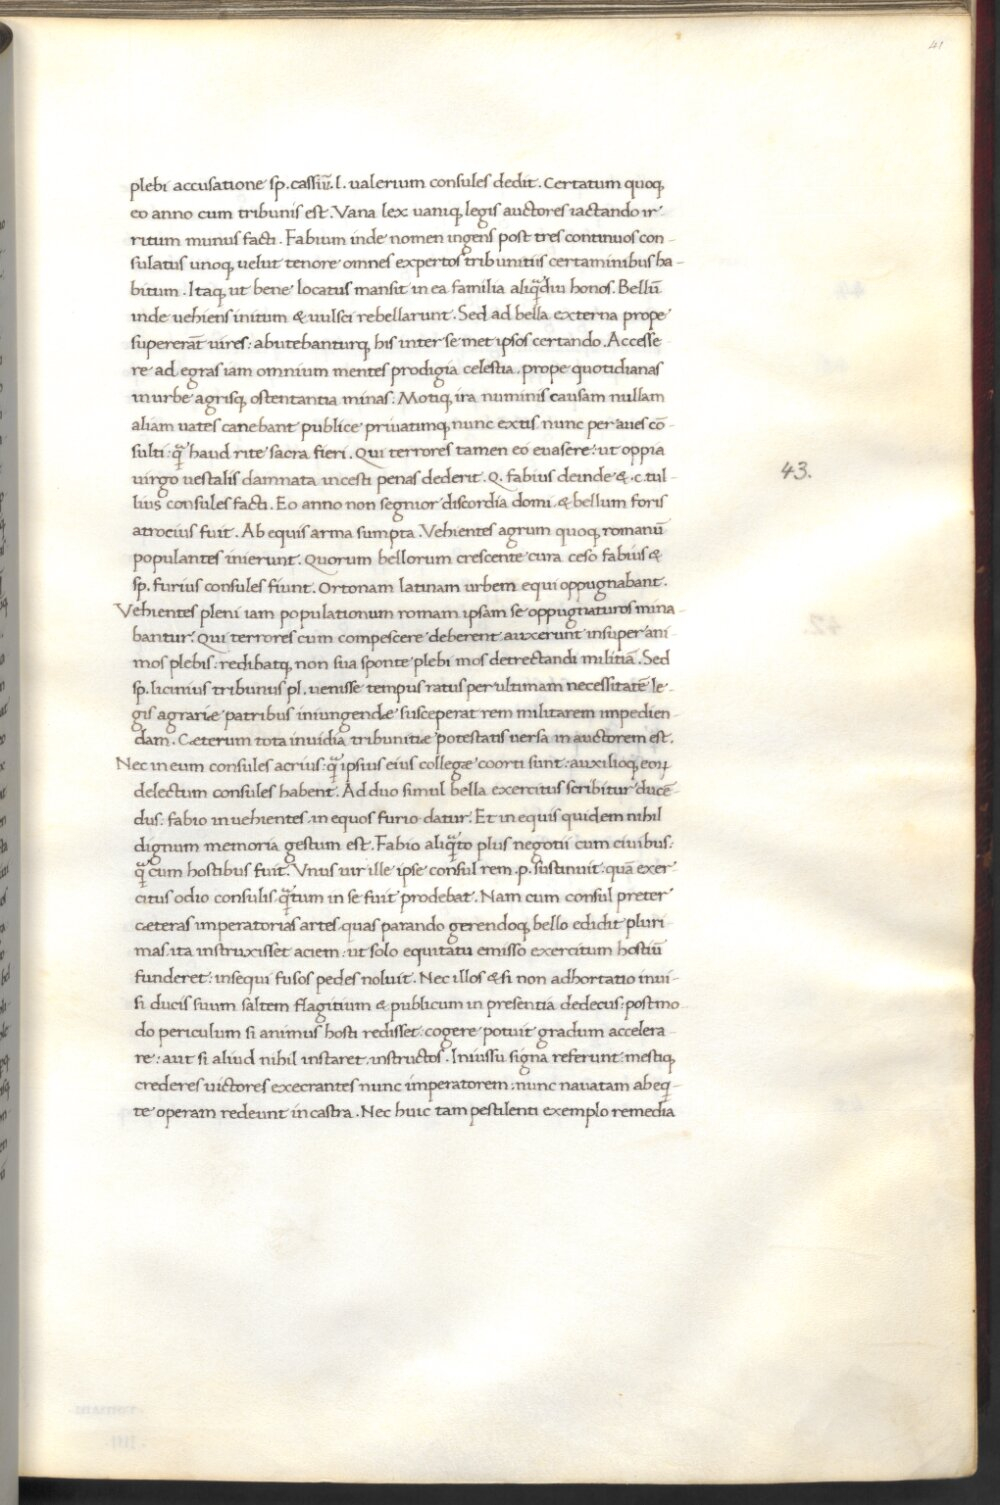 41
plebi accusatione sp. cassiū. l. ualerium consules dedit. Certatum quoq;
eo anno cum tribunis est. Vana lex uaniq; legis auctores iactando ir
ritum munus facti. Fabium inde nomen ingens post tres continuos con-
sulatus unoq; uelut tenore omnes expertos tribunitiis certaminibus ha-
bitum. Itaq; ut bene locatus mansit in ea familia aliq̄diu honos. Bellū
inde uehiens initum & uulsci rebellarunt. Sed ad bella externa prope
supererāt uires: abutebanturq; his inter semet ipsos certando. Accesse
re ad egras iam omnium mentes prodigia celestia. prope quotidianas
in urbe agrisq; ostentantia minas: Motiq; ira numinis causam nullam
aliam uates canebant publice priuatimq; nunc extis nunc per aues cō-
sulti: q̄ haud rite sacra fieri. Qui terrores tamen eo euasere: ut oppia
uirgo uestalis damnata incesti penas dederit. Q. fabius deinde &. c. tul-
43.
lius consules facti. Eo anno non segnior discordia domi. & bellum foris
atrocius fuit. Ab equis arma sumpta. Vehientes agrum quoq; romanū
populantes inierunt. Quorum bellorum crescente cura ceso fabius &
sp. furius consules fiunt. Ortonam latinam urbem equi oppugnabant.
Vehientes pleni iam populationum romam ipsam se oppugnaturos mina-
bantur. Qui terrores cum compescere deberent auxerunt insuper ani-
mos plebis: redibatq; non sua sponte plebi mos detrectandi militiā. Sed
sp. licinius tribunus pl. uenisse tempus ratus per ultimam necessitatē le-
gis agrariæ patribus iniungendæ susceperat rem militarem impedien-
dam. Cæterum tota inuidia tribunitiæ potestatis uersa in auctorem est.
Nec in eum consules acrius: q̄ ipsius eius collegæ coorti sunt: auxilioq; eoꝝ
delectum consules habent. Ad duo simul bella exercitus scribitur ducē
dus: fabio in uehientes. in equos furio datur. Et in equis quidem nihil
dignum memoria gestum est. Fabio aliq̄to plus negotii cum ciuibus:
q̄ cum hostibus fuit. Vnus uir ille ipse consul rem. p. sustinuit: quā exer-
citus odio consulis. q̄tum in se fuit prodebat. Nam cum consul preter
cæteras imperatorias artes. quas parando gerendoq; bello edidit pluri-
mas. ita instruxisset aciem: ut solo equitatu emisso exercitum hostiū
funderet: insequi fusos pedes noluit. Nec illos & si non adhortatio inui-
si ducis suum saltem flagitium & publicum in presentia dedecus: postmo-
do periculum si animus hosti redisset: cogere potuit gradum accelera-
re: aut si aliud nihil instaret. instructos. Iniussu signa referunt: mestiq;
crederes uictores execrantes nunc imperatorem: nunc nauatam ab eq-
te operam redeunt in castra. Nec huic tam pestilenti exemplo remedia